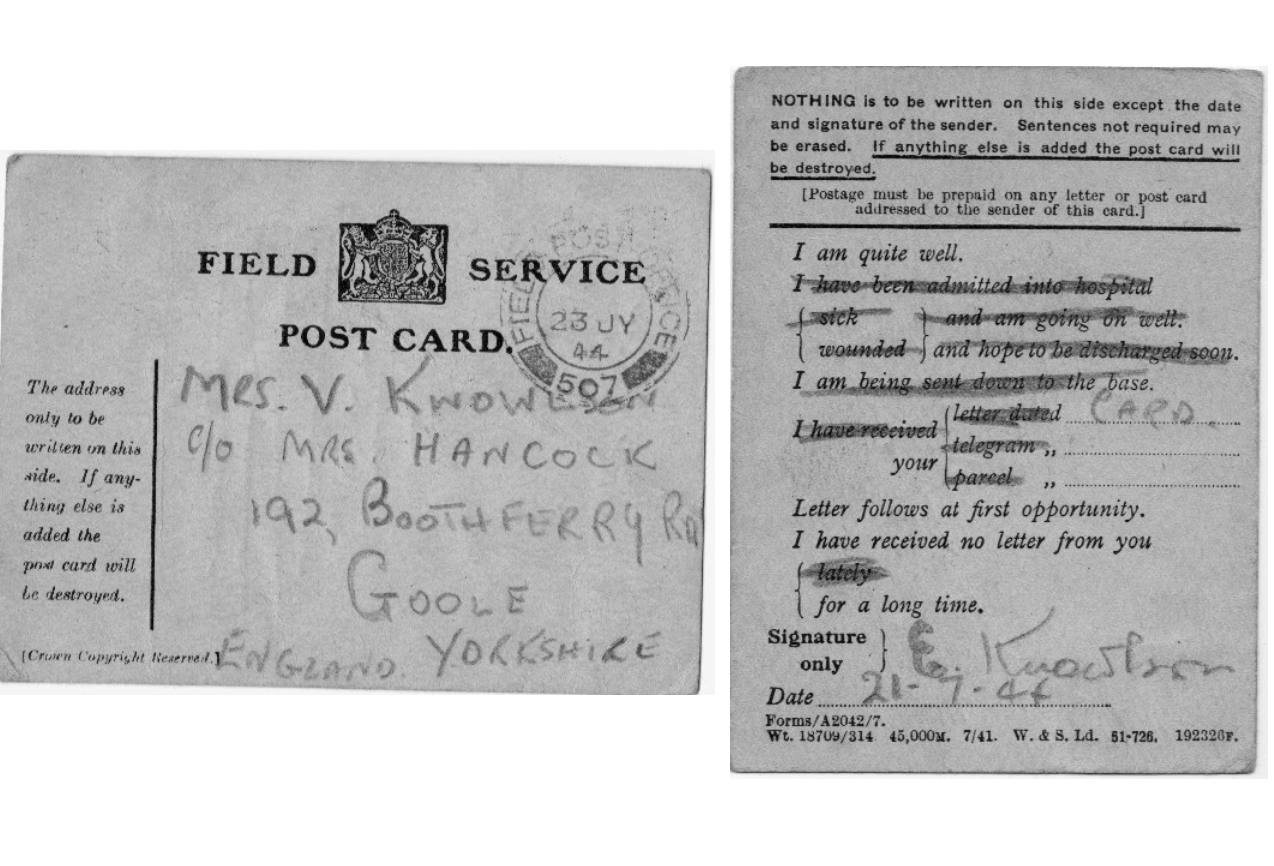 FIELD SERVICE
POST CARD.
FIELD POST OFFICE
23 JY
44
507
The address
only to be
written on this
side. If any-
thing else is
added the
post card will
be destroyed.
[Crown Copyright Reserved.]
MRS. V. KNOWLSON
C/O MRS. HANCOCK
192, BOOTHFERRY RD
GOOLE
ENGLAND. YORKSHIRE
NOTHING is to be written on this side except the date
and signature of the sender. Sentences not required may
be erased. If anything else is added the post card will
be destroyed.
[Postage must be prepaid on any letter or post card
addressed to the sender of this card.]
I am quite well.
I have been admitted into hospital
sick and am going on well.
wounded and hope to be discharged soon.
I am being sent down to the base.
letter dated CARD
I have received
telegram ,,
your
parcel ,,
Letter follows at first opportunity.
I have received no letter from you
lately
for a long time.
Signature
only
E. Knowlson
Date 21-7-44
Forms/A2042/7.
Wt. 18709/314 45,000M. 7/41. W. & S. Ld. 51-726. 192328F.